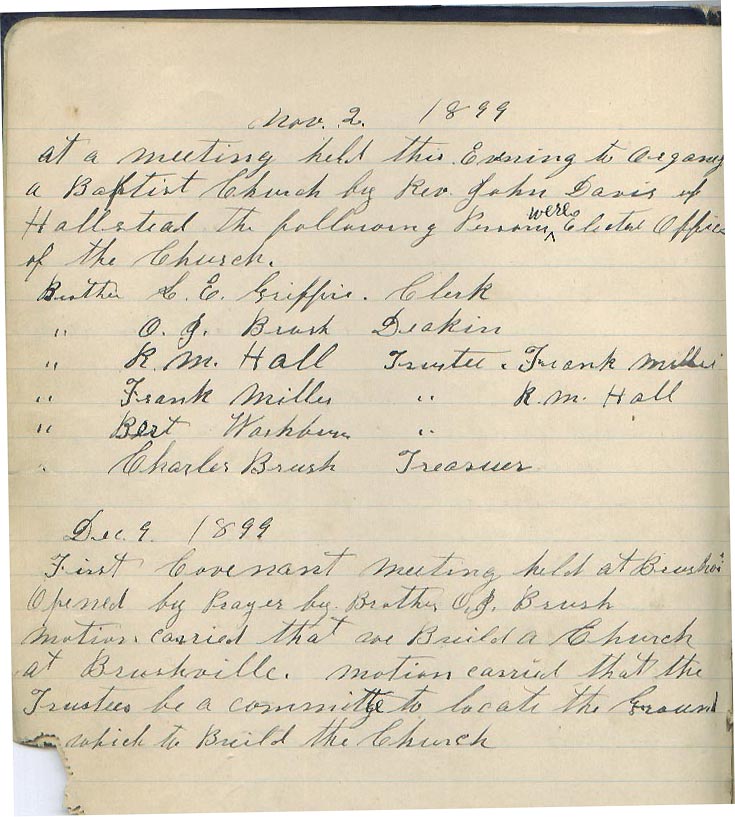 Nov. 2. 1899
at a meeting held this Evening to Organize
a Baptist Church by Rev. John Davis of
Hallstead the following Persons were Elected Office
of the Church.
Brother L. E. Griffis. Clerk
" O. J. Brush Deakin
" R. M. Hall Trustee. Frank Miller
" Frank Miller " R. M. Hall
" Bert Washburn "
" Charles Brush Treasuer
Dec. 9. 1899
First Covenant meeting held at
Opened by Prayer by Brother O. J. Brush
motion carried that we Build a Church
at Brushville. motion carried that the
Trustees be a committe to locate the Ground
which to Build the Church